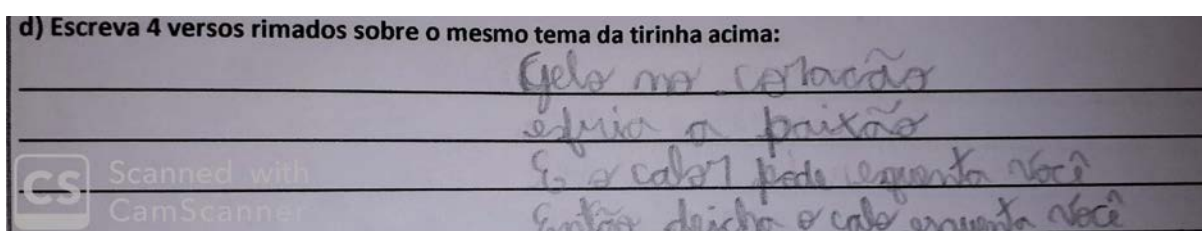 d) Escreva 4 versos rimados sobre o mesmo tema da tirinha acima:
Gelo no coração
esfria a paixão
E o calor pode esquenta você
Então deicha o calo esquenta você
CS Scanned with
CamScanner